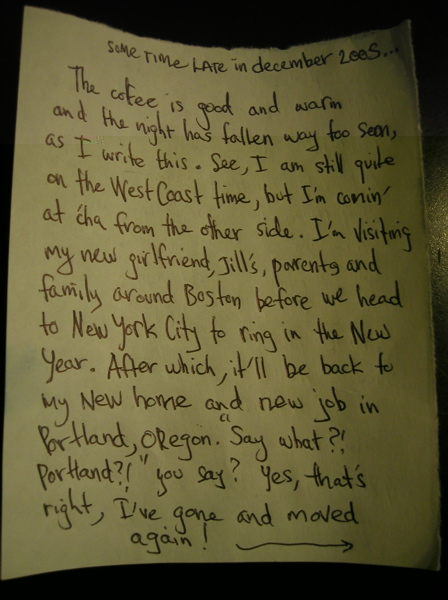 SOME TIME LATE in december 2005...
The coffee is good and warm
and the night has fallen way too soon,
as I write this. See, I am still quite
on the West Coast time, but I'm comin'
at 'cha from the other side. I'm visiting
my new girlfriend, Jill's, parents and
family around Boston before we head
to New York City to ring in the New
Year. After which, it'll be back to
my New home and new job in
Portland, Oregon. "Say what?!
Portland?!" you say? Yes, that's
right, I've gone and moved
again!